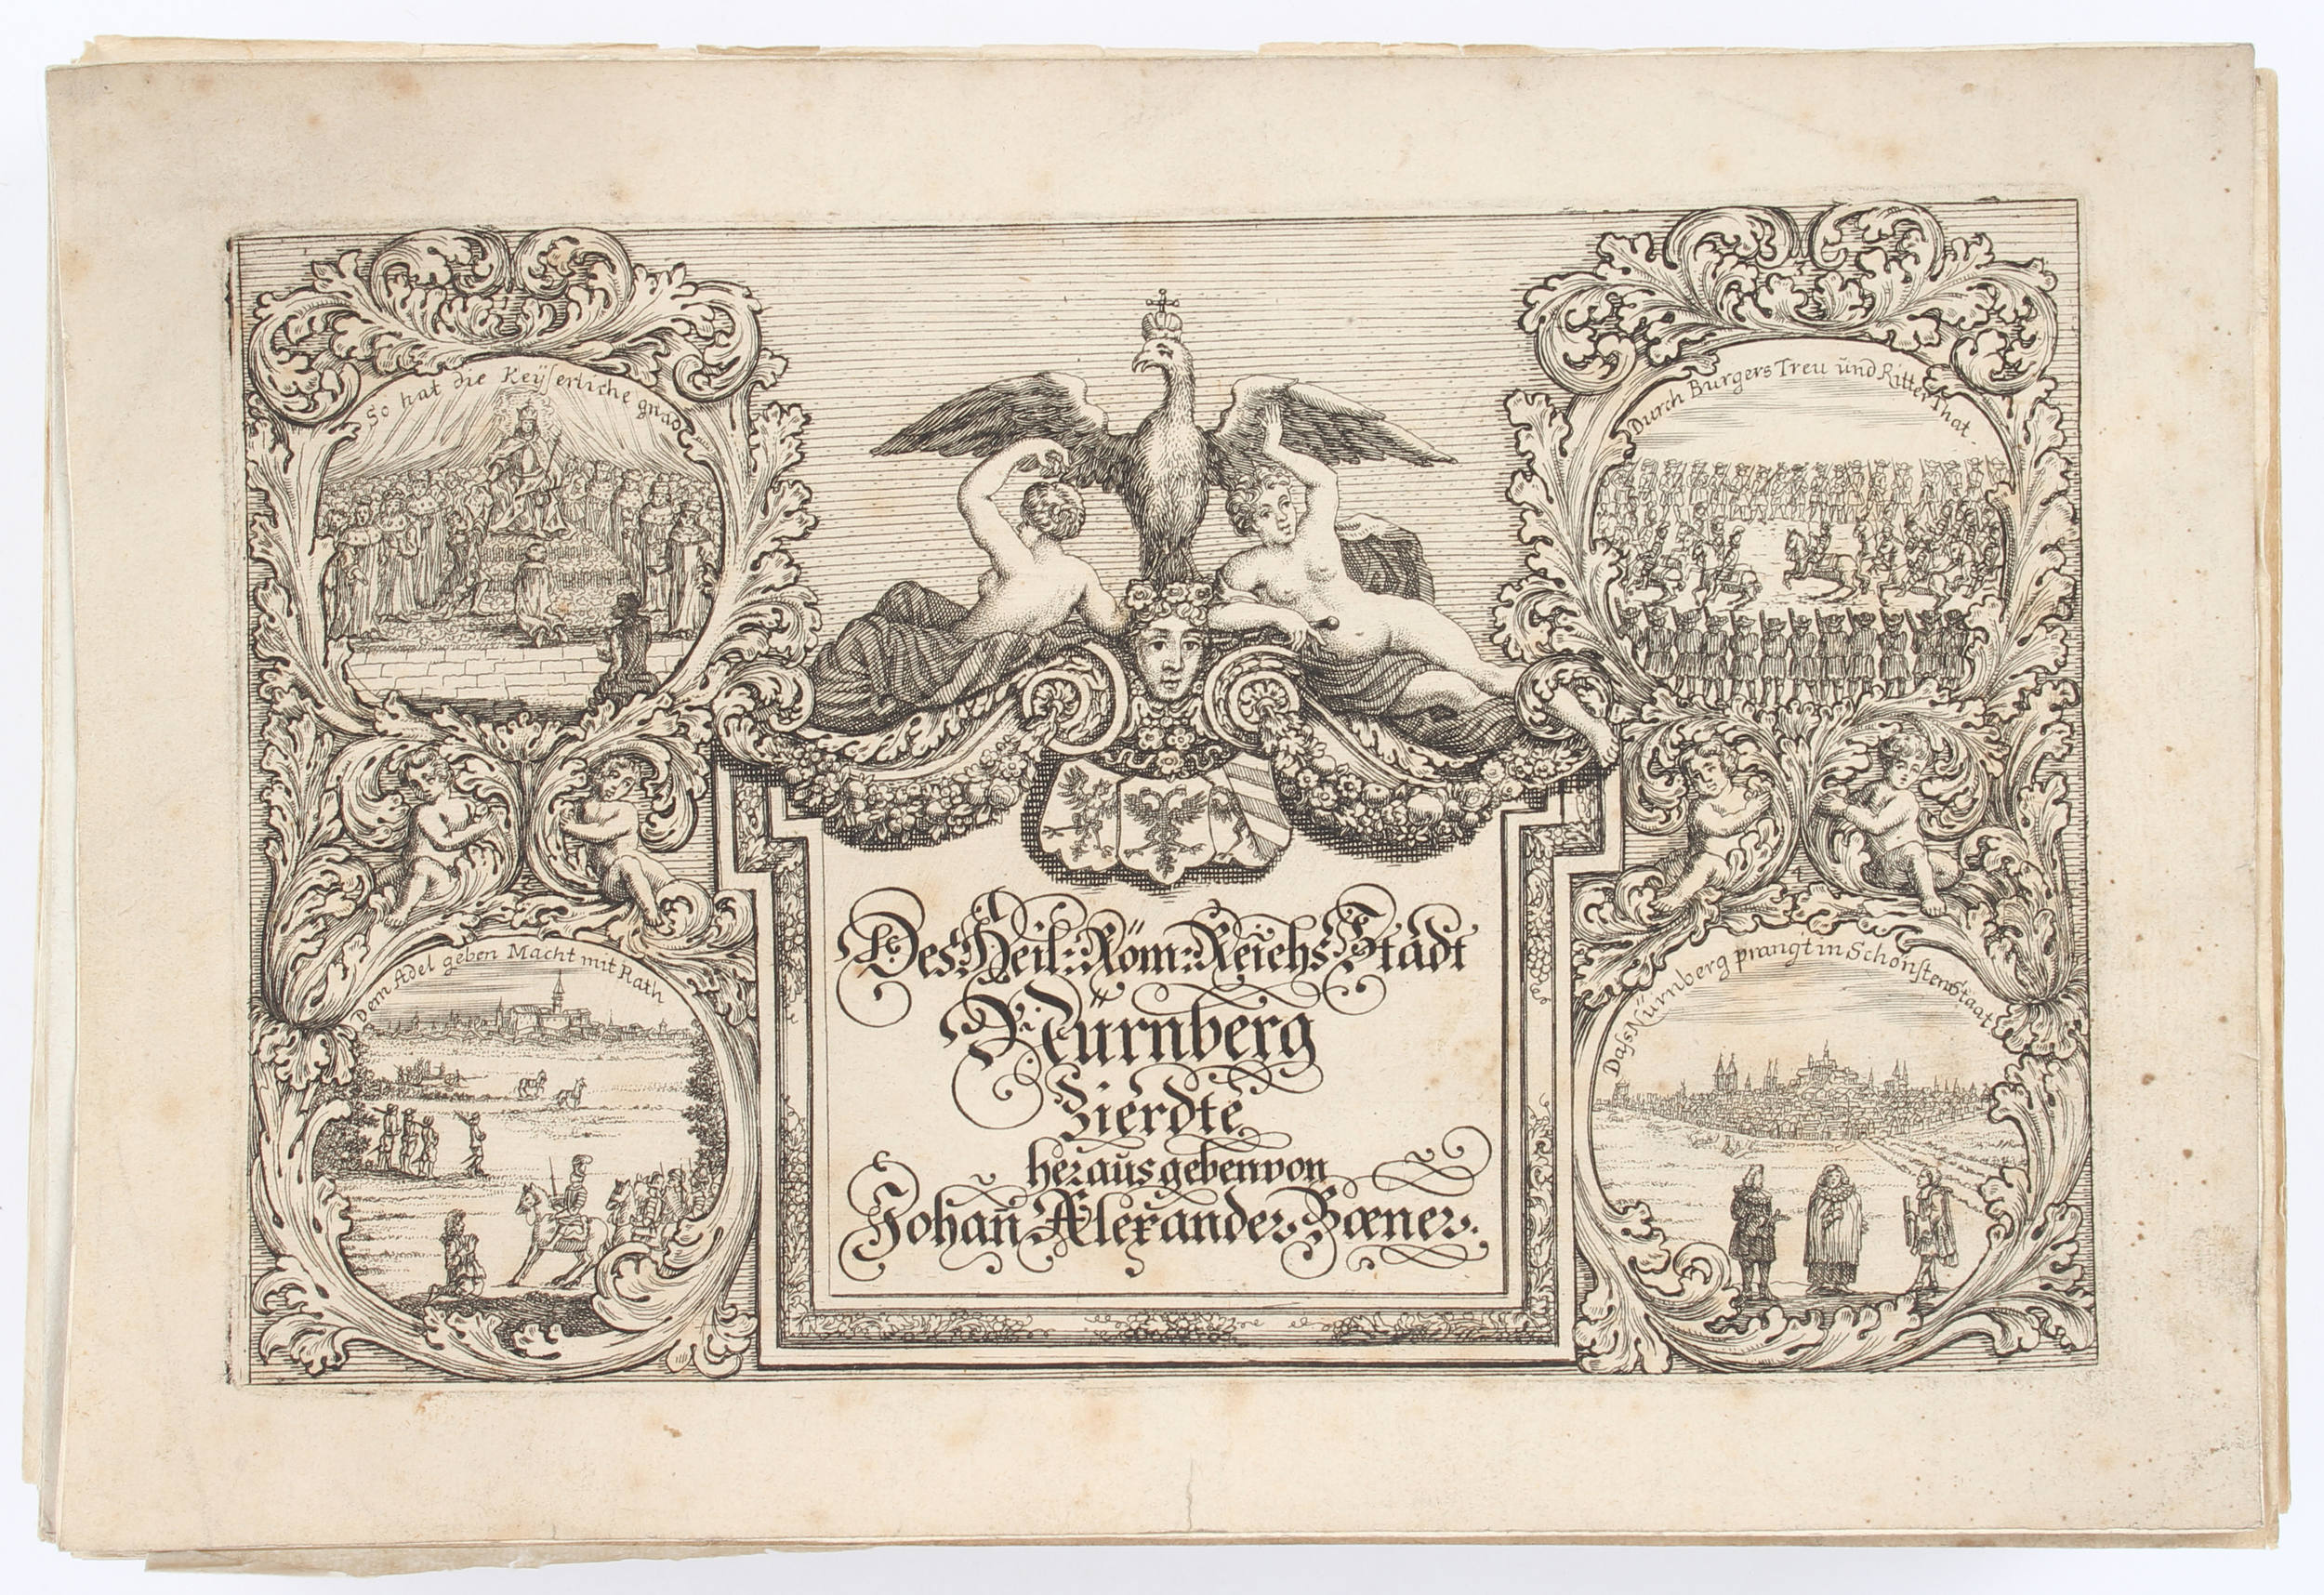 So hat die Keyserliche gnad
Dem Adel geben Macht mit Rath
Durch Burgers Treu ünd Ritter That.
Dass Nürnberg prangt in Schönsten Staat
Des Heil: Röm: Reichs Stadt
Nürnberg
Zierdte
heraus geben von
Johan̄ Alexander Bœner.